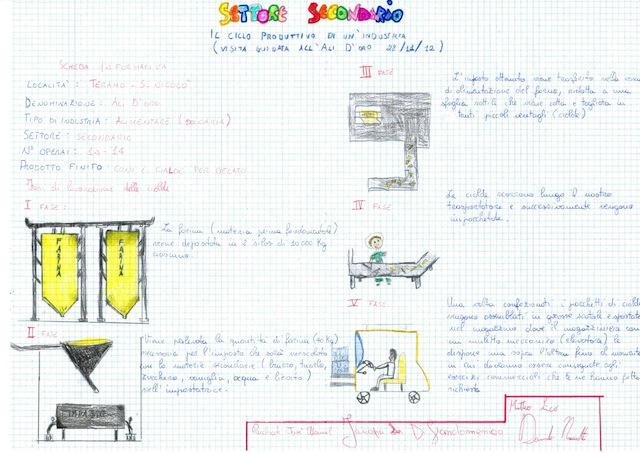 SETTORE SECONDARIO
IL CICLO PRODUTTIVO DI UN'INDUSTRIA
(VISITA GUIDATA ALL'ALI D'ORO
SCHEDA INFORMATIVA
LOCALITÀ: TERAMO - S. NICOLO'
DENOMINAZIONE: ALI D'ORO
TIPO DI INDUSTRIA: ALIMENTARE (DOLCIARIA)
SETTORE: SECONDARIO
N° OPERAI:
PRODOTTO FINITO: CONI E CIALDE PER GELATO
Fasi di lavorazione delle cialde
I FASE:
FARINA
FARINA
La farina (materia prima fondamentale)
viene depositata in 2 silos di 10000 Kg
ciascuno.
II FASE
Viene prelevata la quantità di farina
necessaria per l'impasto che sarà mescolata
con le materie secondarie (
zucchero, vaniglia, acqua e
nell'impastatrice.
III FASE
L'impasto ottenuto viene trasferito nella
di alimentazione del forno, ridotta a una
sfoglia sottile che viene cotta e tagliata in
tanti piccoli ventagli (cialde)
IV FASE
Le cialde scorrono lungo il nastro
trasportatore e successivamente vengono
impacchettate.
V FASE
Una volta confezionati, i pacchetti di cialde
vengono assemblati in grosse scatole e spostate
nel magazzino dove il magazziniere con
un muletto meccanico (elevatore) le
dispone una sopra l'altra fino al momento
in cui dovranno essere consegnate agli
esercizi commerciali che te ne hanno fatto
richiesta